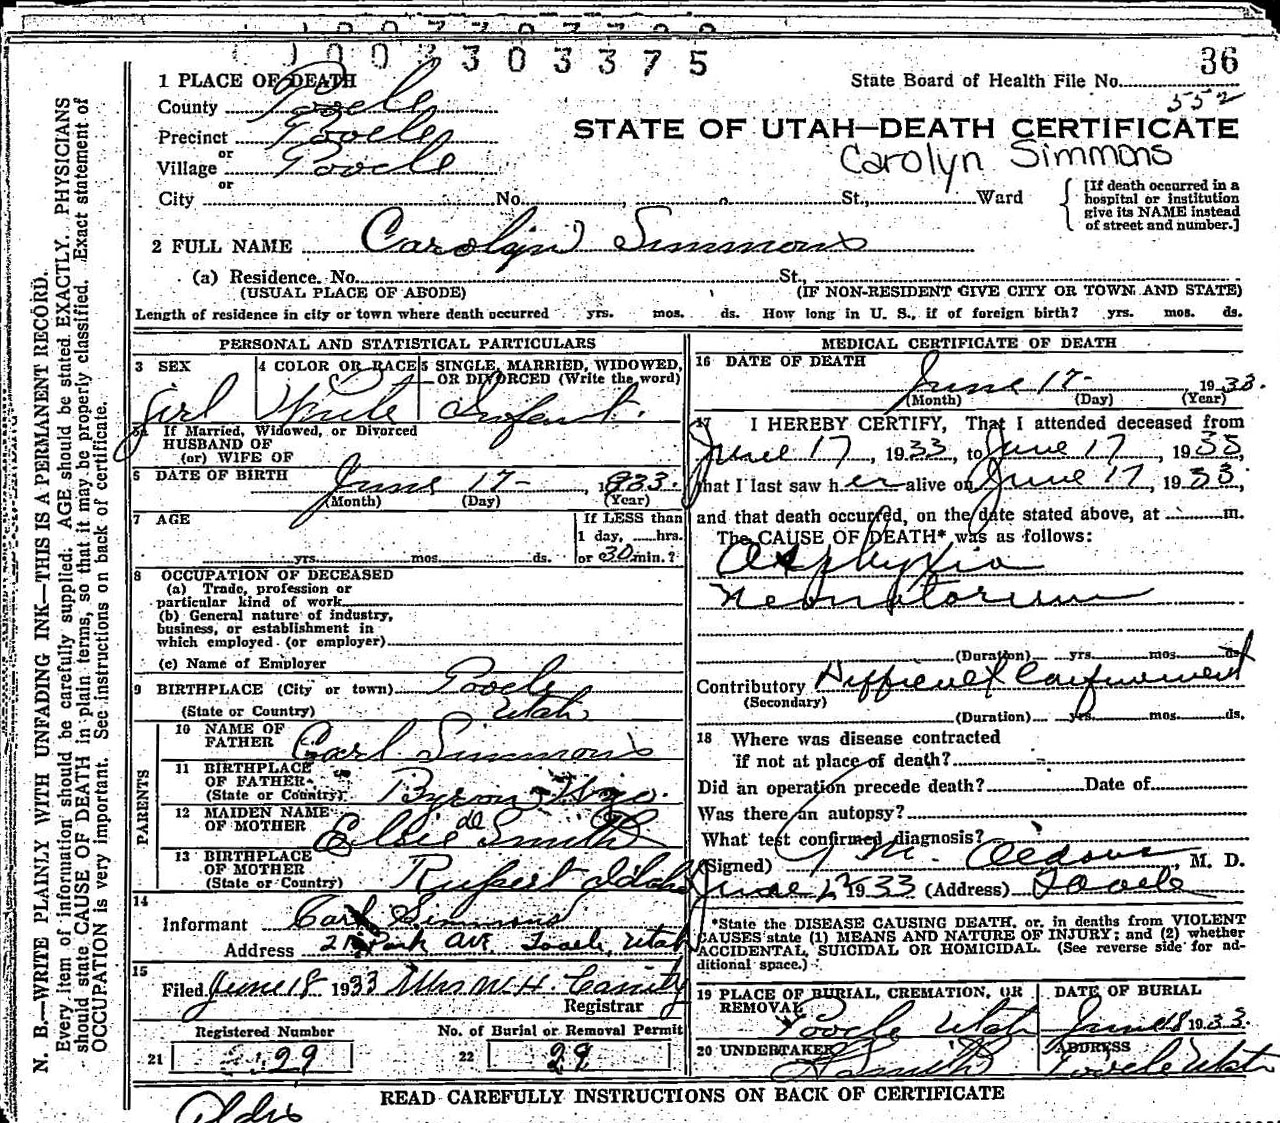 1 0 0 3 3 0 3 3 7 5
36
1 PLACE OF DEATH
State Board of Health File No.
552
County Tooele
Precinct Tooele
STATE OF UTAH—DEATH CERTIFICATE
or
Village Tooele
Carolyn Simmons
or
City No. St., Ward
[If death occurred in a
hospital or institution
give its NAME instead
of street and number.]
2 FULL NAME Carolyn Simmons
(a) Residence. No. St.,
(USUAL PLACE OF ABODE) (IF NON-RESIDENT GIVE CITY OR TOWN AND STATE)
Length of residence in city or town where death occurred yrs. mos. ds. How long in U. S., if of foreign birth? yrs. mos. ds.
PERSONAL AND STATISTICAL PARTICULARS
3 SEX
girl
4 COLOR OR RACE
White
5 SINGLE, MARRIED, WIDOWED,
OR DIVORCED (Write the word)
Infant.
5a If Married, Widowed, or Divorced
HUSBAND OF
(or) WIFE OF
6 DATE OF BIRTH June 17- , 1933.
(Month) (Day) (Year)
7 AGE
If LESS than
1 day, hrs.
yrs. mos. ds. or 30 min.?
8 OCCUPATION OF DECEASED
(a) Trade, profession or
particular kind of work
(b) General nature of industry,
business, or establishment in
which employed (or employer)
(c) Name of Employer
9 BIRTHPLACE (City or town) Tooele
(State or Country) Utah
PARENTS
10 NAME OF
FATHER Carl Simmons
11 BIRTHPLACE
OF FATHER
(State or Country) Byron Wyo.
12 MAIDEN NAME
OF MOTHER Elsie Smith
13 BIRTHPLACE
OF MOTHER
(State or Country) Rupert Idaho
14
Informant Carl Simmons
Address Park Ave. Tooele, Utah
15
Filed June 18 1933 Mrs W. H. Cassity
Registrar
Registered Number No. of Burial or Removal Permit
21 29 22 29
MEDICAL CERTIFICATE OF DEATH
16 DATE OF DEATH
June 17- 1933.
(Month) (Day) (Year)
17 I HEREBY CERTIFY, That I attended deceased from
June 17, 1933, to June 17, 1933,
that I last saw her alive on June 17, 1933,
and that death occurred, on the date stated above, at m.
The CAUSE OF DEATH* was as follows:
Asphyxia
Neonatorum
(Duration) yrs. mos. ds.
Contributory Difficult Confinement
(Secondary)
(Duration) yrs. mos. ds.
18 Where was disease contracted
if not at place of death?
Did an operation precede death? Date of
Was there an autopsy?
What test confirmed diagnosis?
(Signed) J M. , M. D.
June 1933 (Address) Tooele
*State the DISEASE CAUSING DEATH, or, in deaths from VIOLENT
CAUSES state (1) MEANS AND NATURE OF INJURY; and (2) whether
ACCIDENTAL, SUICIDAL OR HOMICIDAL. (See reverse side for ad-
ditional space.)
19 PLACE OF BURIAL, CREMATION, OR
REMOVAL
Tooele Utah
DATE OF BURIAL
June 18 1933.
20 UNDERTAKER
ADDRESS
Tooele Utah
READ CAREFULLY INSTRUCTIONS ON BACK OF CERTIFICATE
N. B.—WRITE PLAINLY WITH UNFADING INK—THIS IS A PERMANENT RECORD.
Every item of information should be carefully supplied. AGE should be stated EXACTLY. PHYSICIANS
should state CAUSE OF DEATH in plain terms, so that it may be properly classified. Exact statement of
OCCUPATION is very important. See instructions on back of certificate.